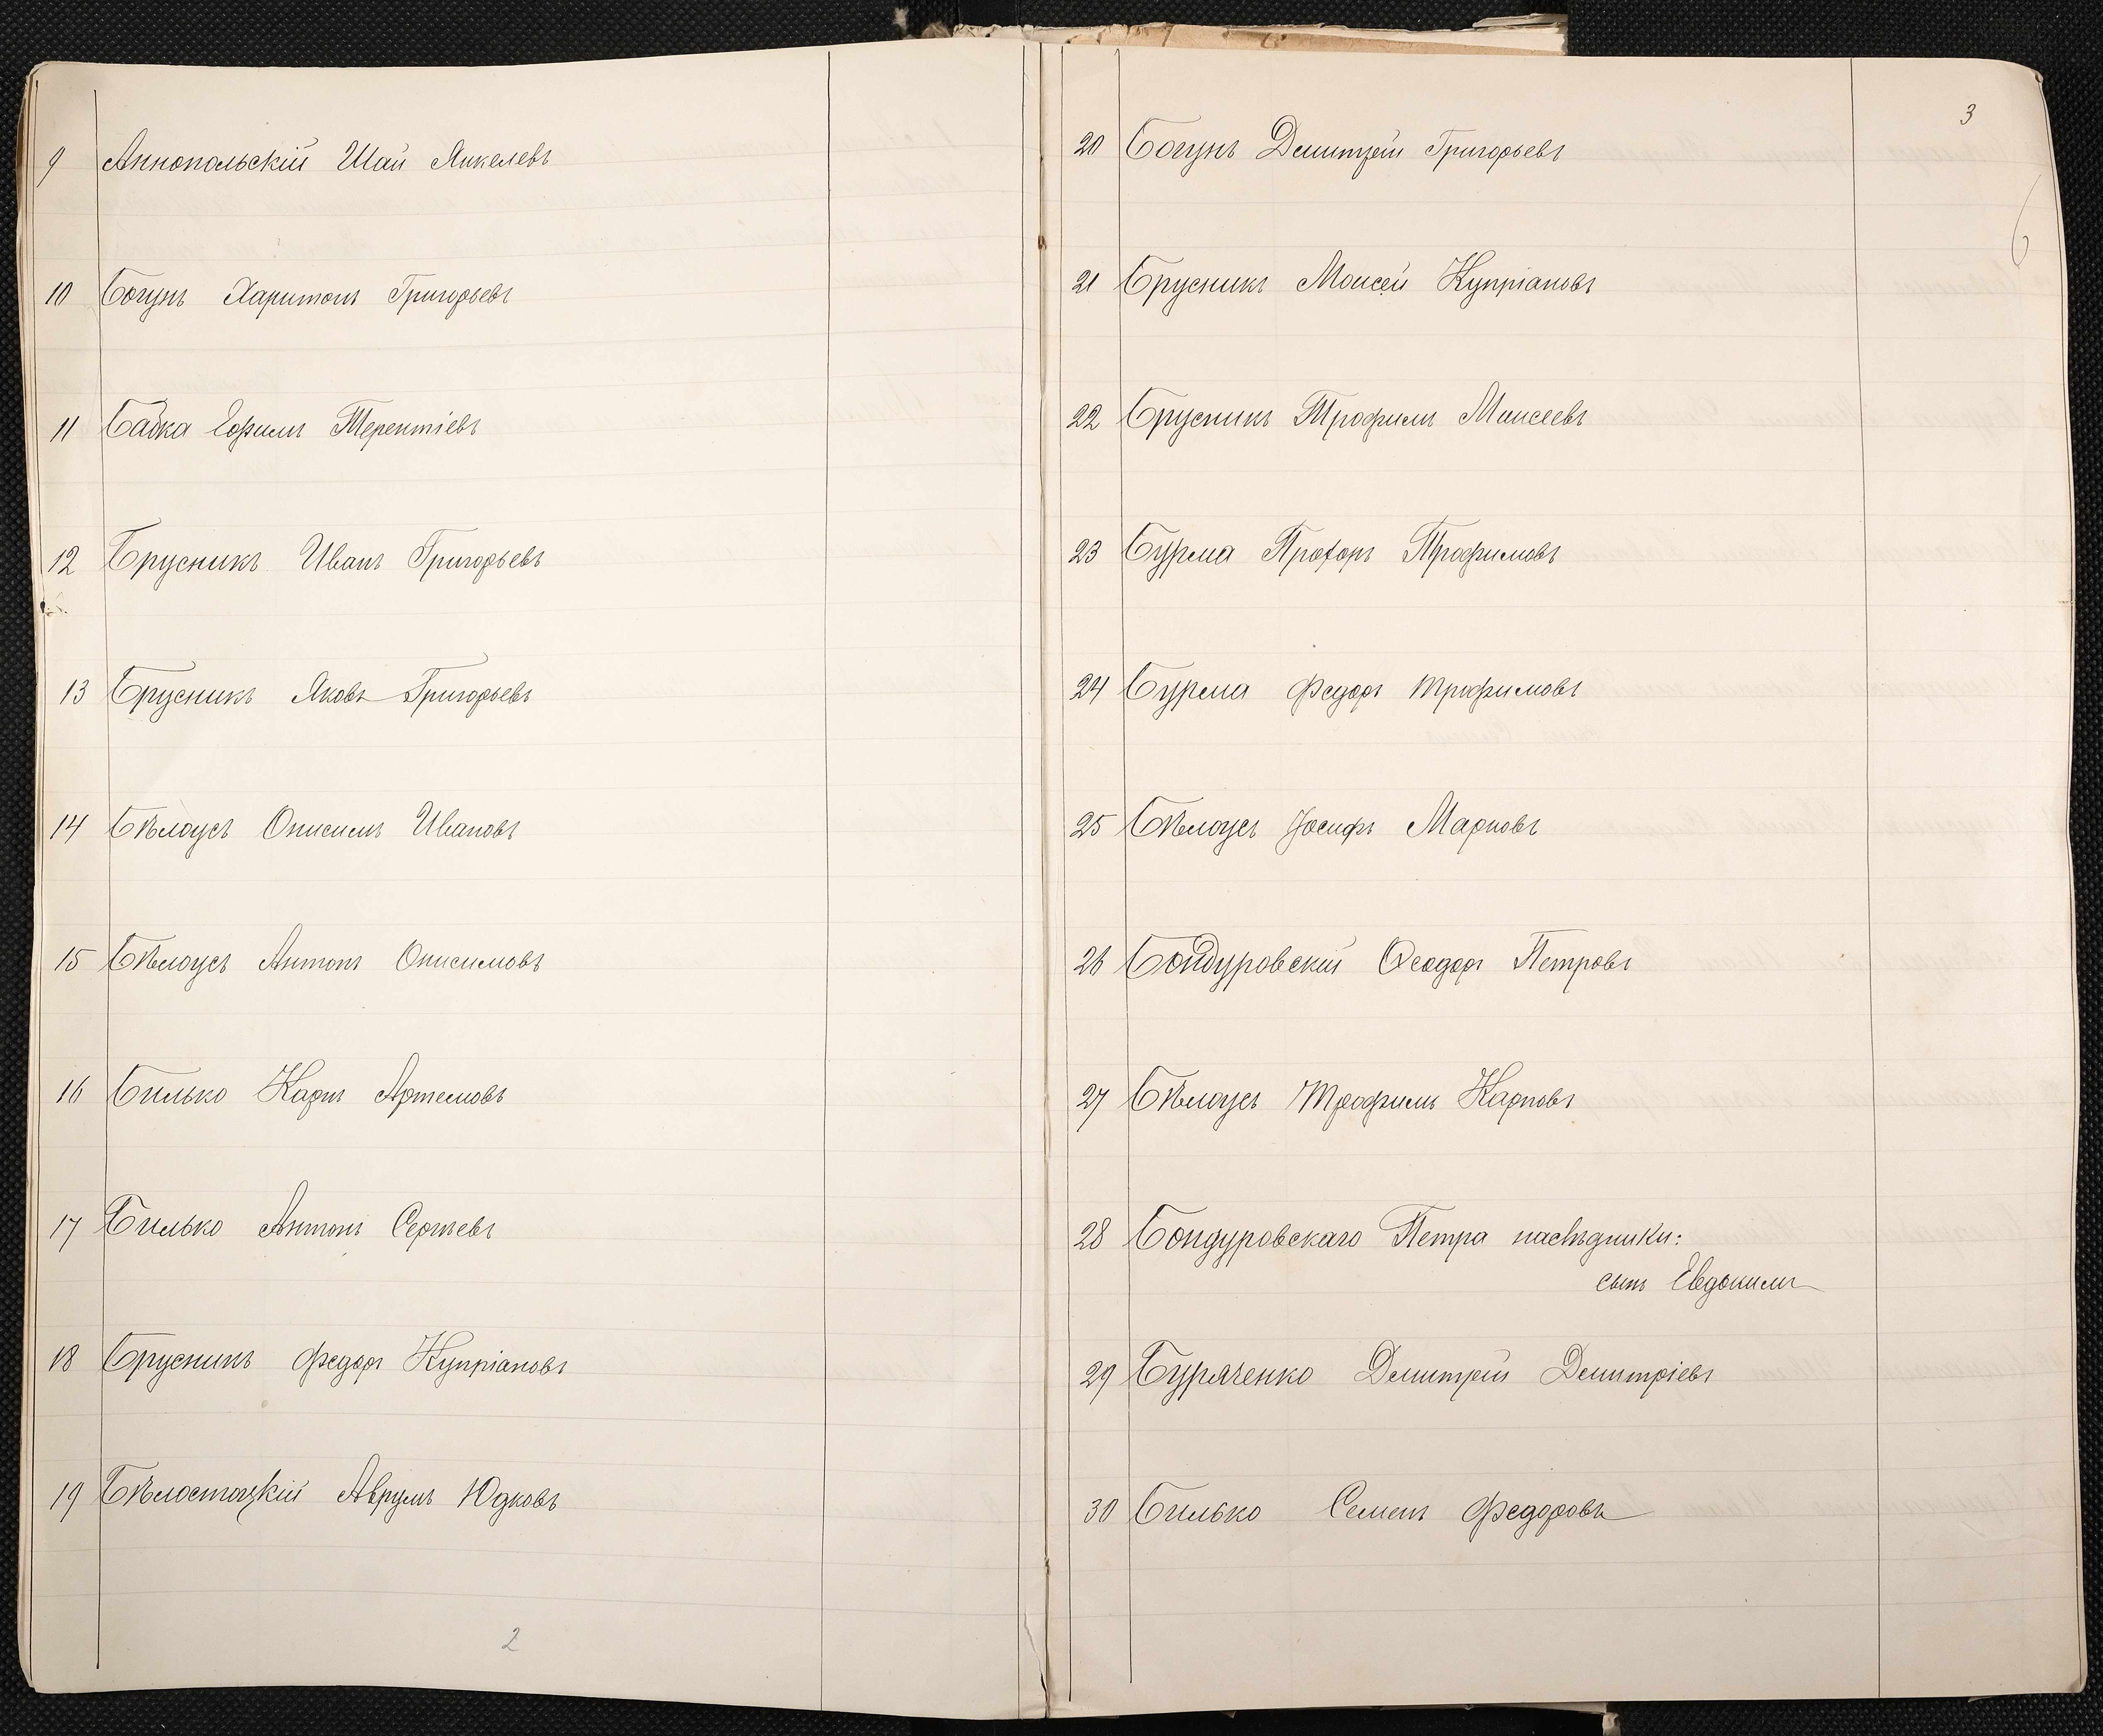 9 Аннопольскій Шай Янкелевъ
10 Богунъ Харитонъ Григорьевъ
11 Бабка Ефимъ Терентіевъ
12 Брусникъ Иванъ Григорьевъ
13 Брусникъ Яковъ Григорьевъ
14 Бѣлоусъ Онисимъ Ивановъ
15 Бѣлоусъ Антонъ Онисимовъ
16 Билько Карпъ Артемовъ
17 Билько Антонъ Сергѣевъ
18 Брусникъ Федоръ Купріановъ
19 Бѣлостоцкій Аврумъ Юдковъ
2
3
20 Богунъ Демитрій Григорьевъ
21 Брусникъ Моисей Купріановъ
22 Брусникъ Трофимъ Моисеевъ
23 Бурма Прохоръ Трофимовъ
24 Бурма Федоръ Трофимовъ
25 Бѣлоусъ Іосифъ Марковъ
26 Бондуровскій Ѳеодоръ Петровъ
27 Бѣлоусъ Трофимъ Карповъ
28 Бондуровскаго Петра наслѣдники:
сынъ Евдокимъ
29 Буряченко Демитрій Демитріевъ
30 Билько Семенъ Федоровъ